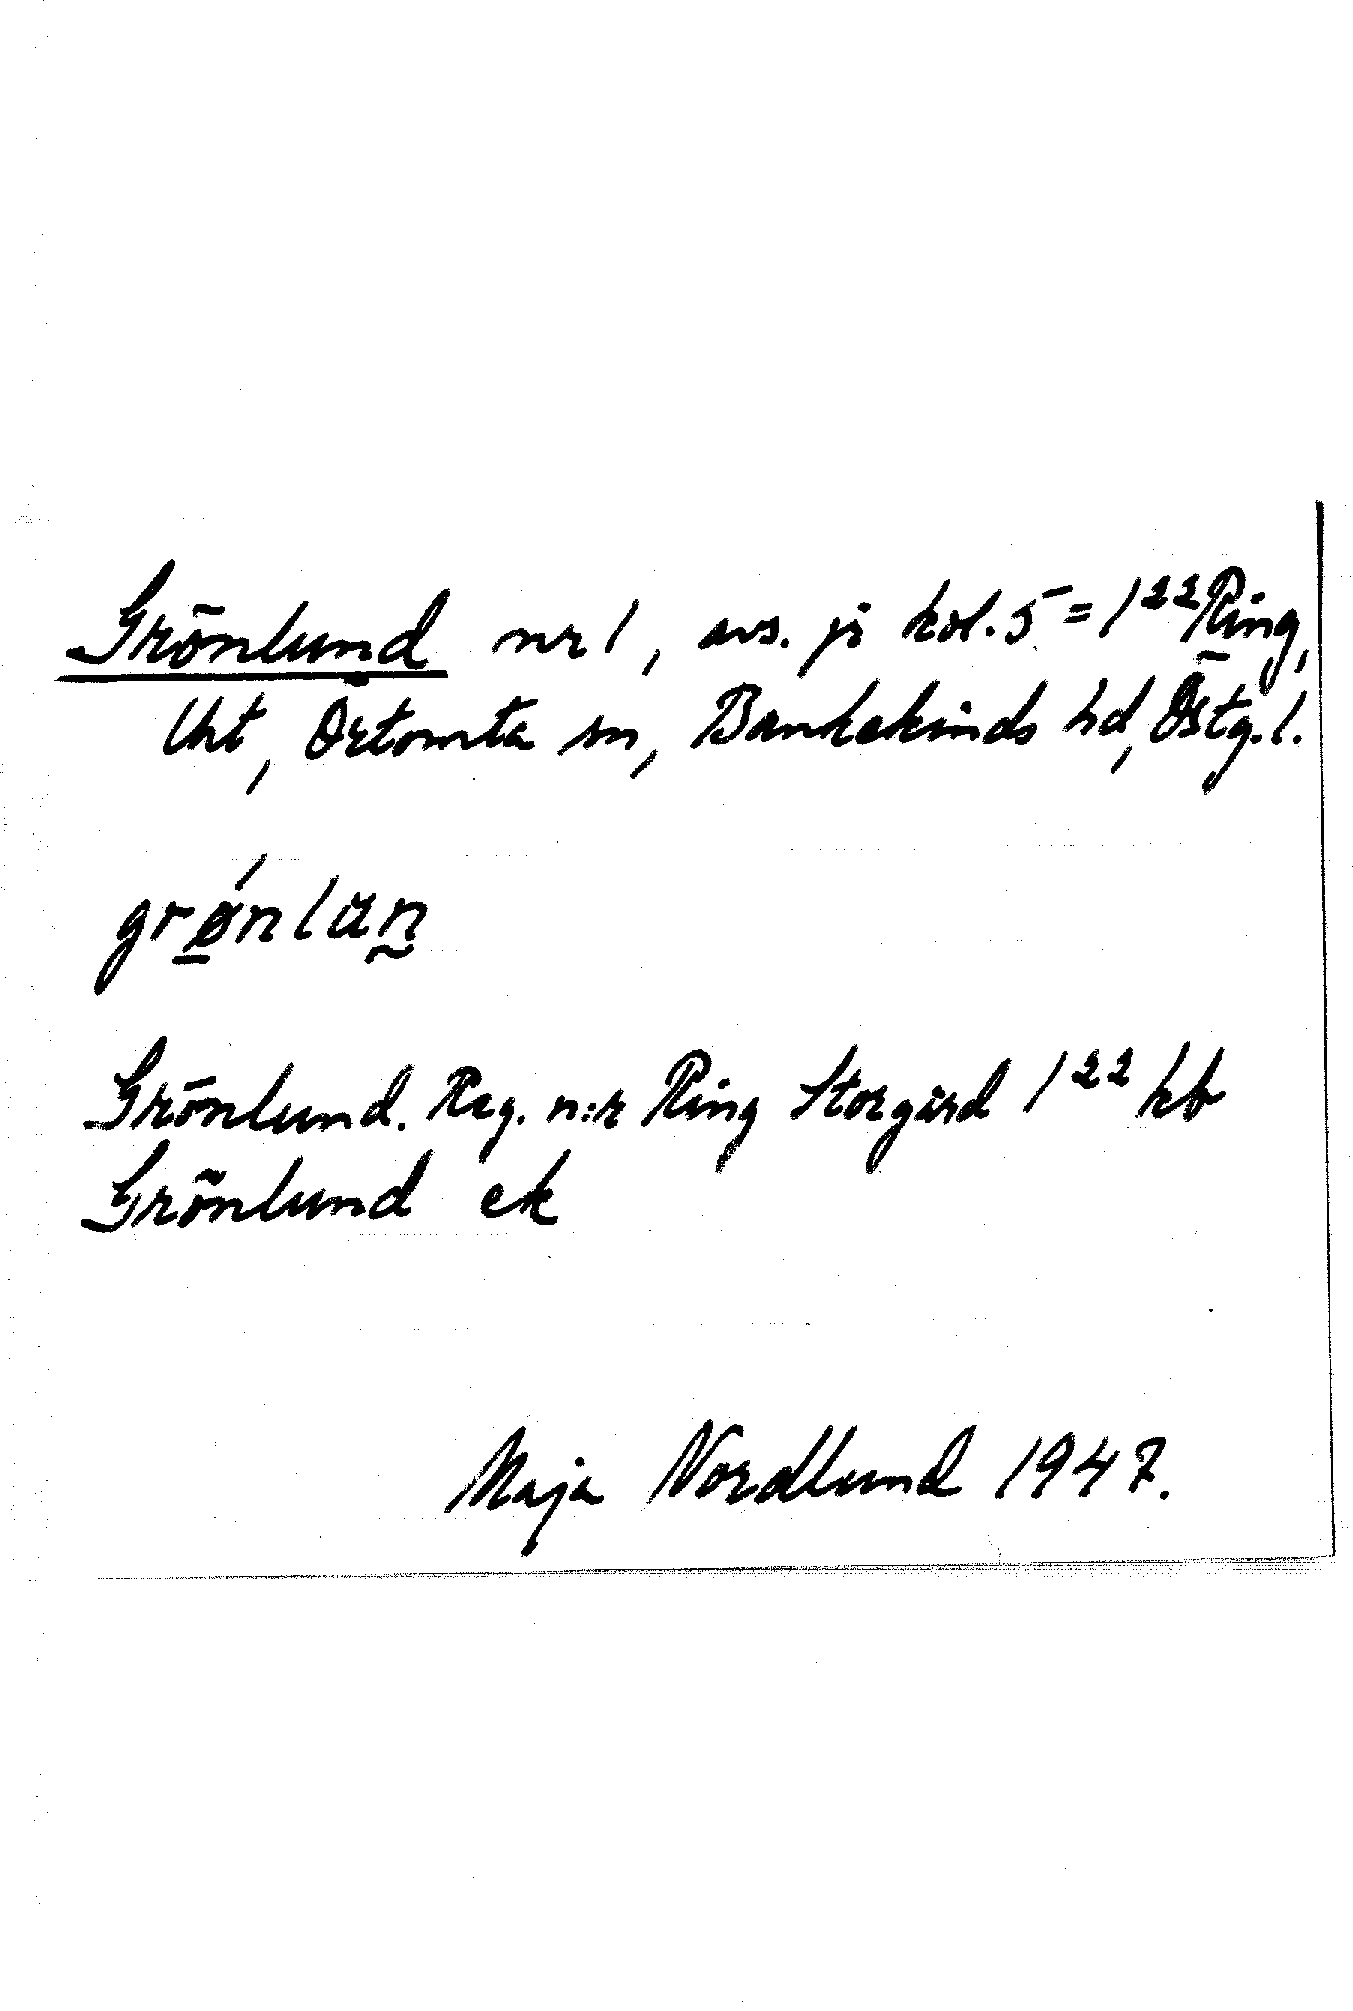 Grönlund nr 1, avs. jr kol. 5 = 1²² Ring,
Uht, Örtomta sn, Bankekinds hd, Östg. l.
grǿnlun
Grönlund. Reg. n:r Ring Storgård 1²² kb
Grönlund ek
Maja Nordlund 1947.